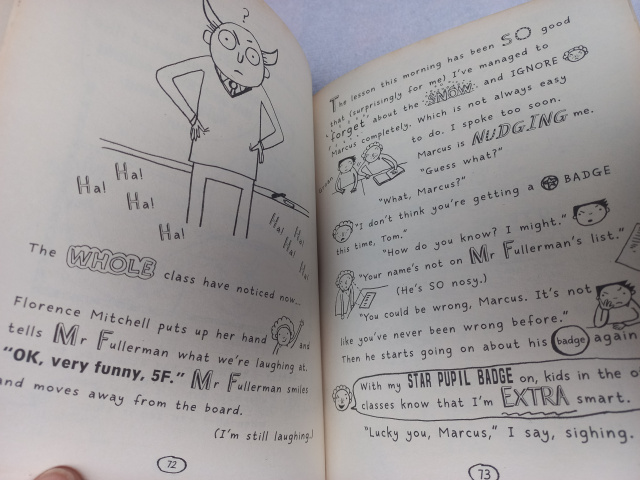 ?
Ha! Ha!
Ha!
Ha!
Ha!
Ha!
Ha!
Ha!
The WHOLE class have noticed now...
Florence Mitchell puts up her hand and
tells Mr Fullerman what we're laughing at.
"OK, very funny, 5F." Mr Fullerman smiles
and moves away from the board.
(I'm still laughing.)
72
The lesson this morning has been SO good
that (surprisingly for me) I've managed to
forget about the SNOW and IGNORE
Marcus completely. Which is not always easy
to do. I spoke too soon.
Groan
Marcus is NUDGING me.
"Guess what?"
"What, Marcus?"
"I don't think you're getting a BADGE
this time, Tom."
"How do you know? I might."
"Your name's not on Mr Fullerman's list."
(He's SO nosy.)
"You could be wrong, Marcus. It's not
like you've never been wrong before."
Then he starts going on about his badge again
With my STAR PUPIL BADGE on, kids in the
classes know that I'm EXTRA smart.
"Lucky you, Marcus," I say, sighing.
73